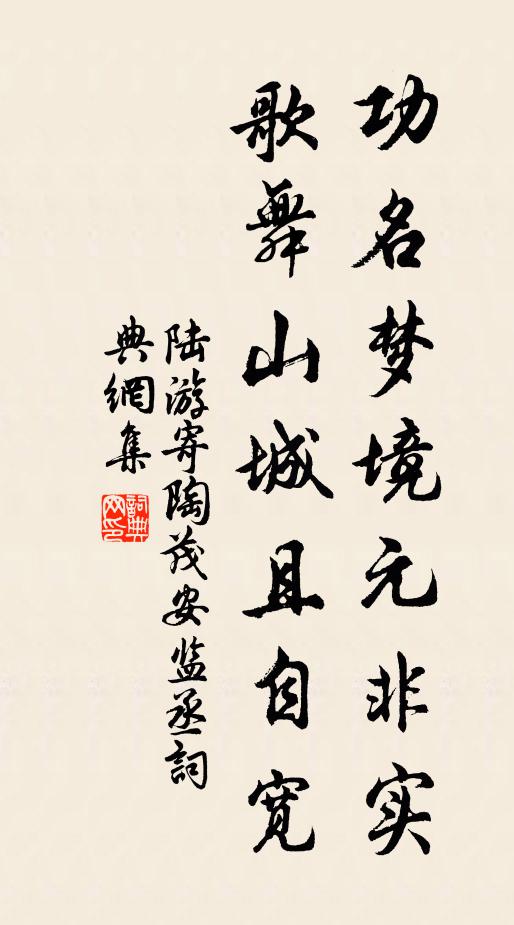 功名梦境元非实
歌舞山城且自宽
陆游寄陶茂安监丞詞
典網集
詞典
网印